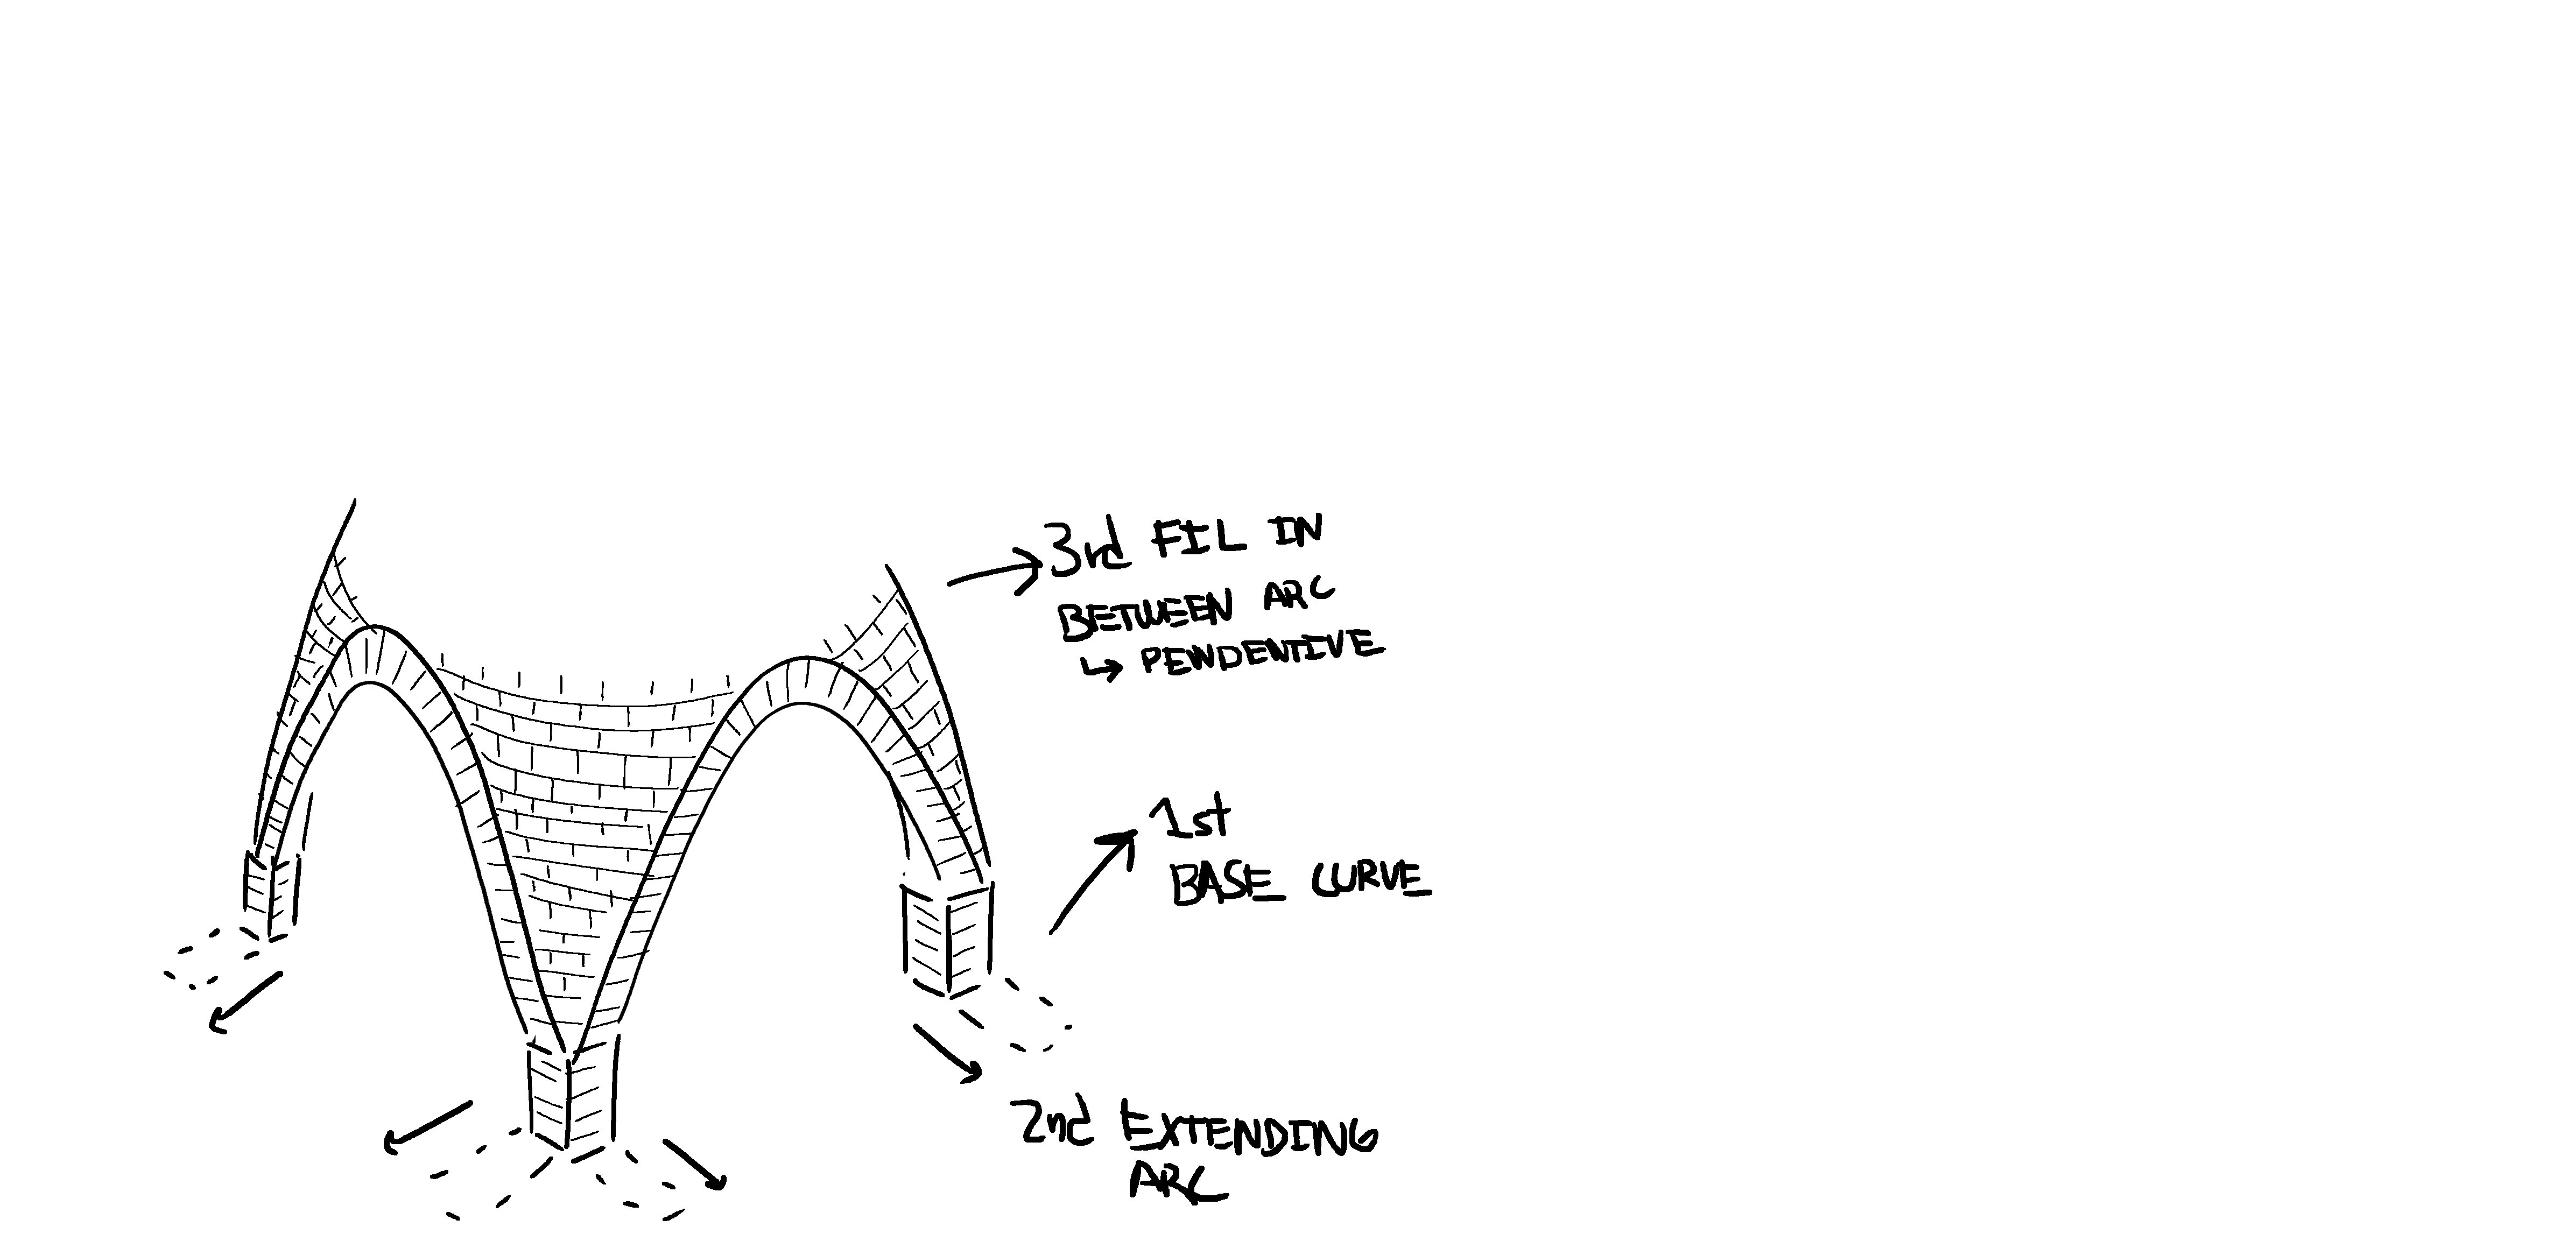 3rd FIL IN
BETWEEN ARC
↳ PENDENTIVE
1st
BASE CURVE
2nd EXTENDING
ARC